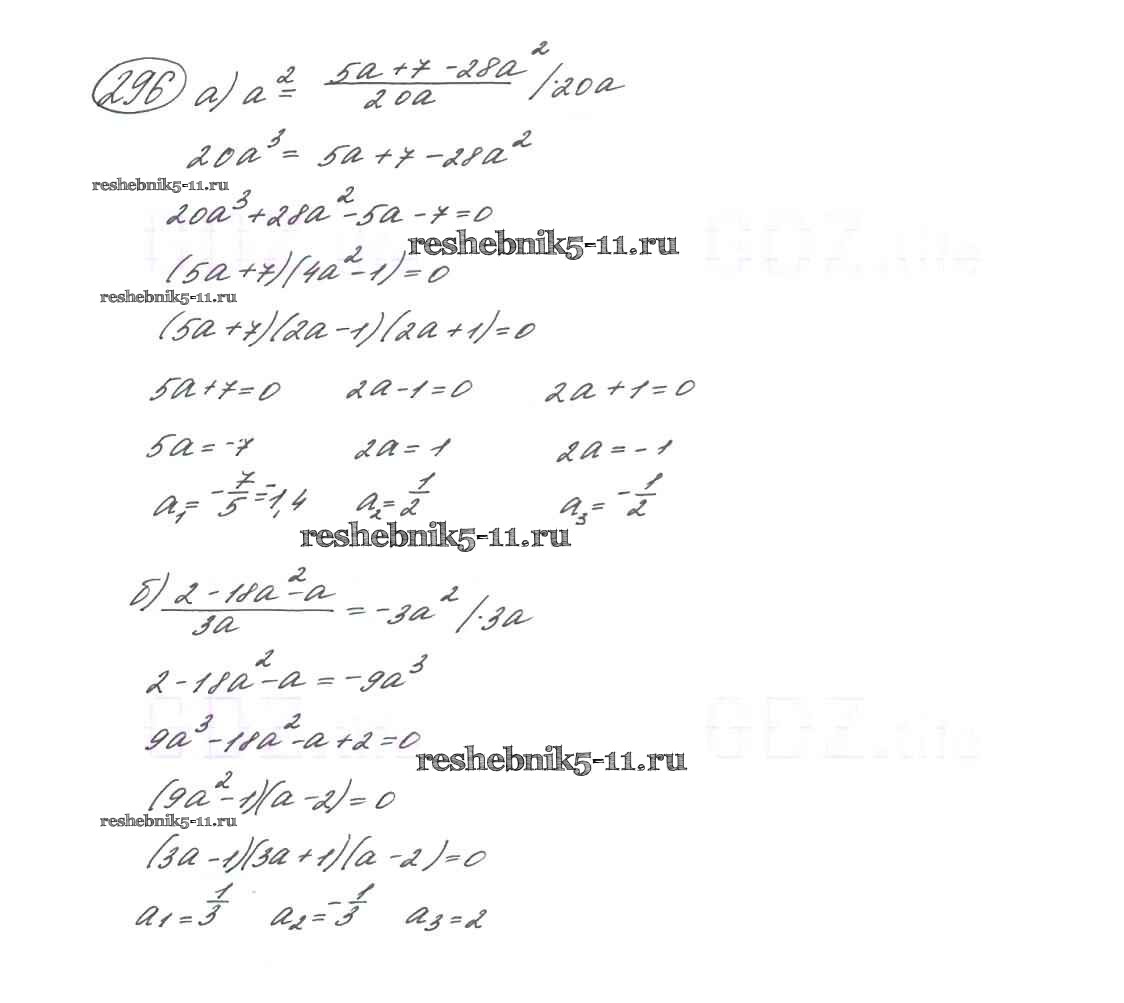 296 а) a² = (5a+7-28a²)/(20a) /·20a
20a³ = 5a+7-28a²
reshebnik5-11.ru
20a³+28a²-5a-7=0
reshebnik5-11.ru
(5a+7)(4a²-1)=0
reshebnik5-11.ru
(5a+7)(2a-1)(2a+1)=0
5a+7=0 2a-1=0 2a+1=0
5a=-7 2a=1 2a=-1
a₁=-7/5=-1,4 a₂=1/2 a₃=-1/2
reshebnik5-11.ru
б) (2-18a²-a)/(3a) = -3a² /·3a
2-18a²-a=-9a³
9a³-18a²-a+2=0
reshebnik5-11.ru
(9a²-1)(a-2)=0
reshebnik5-11.ru
(3a-1)(3a+1)(a-2)=0
a1=1/3 a2=-1/3 a3=2